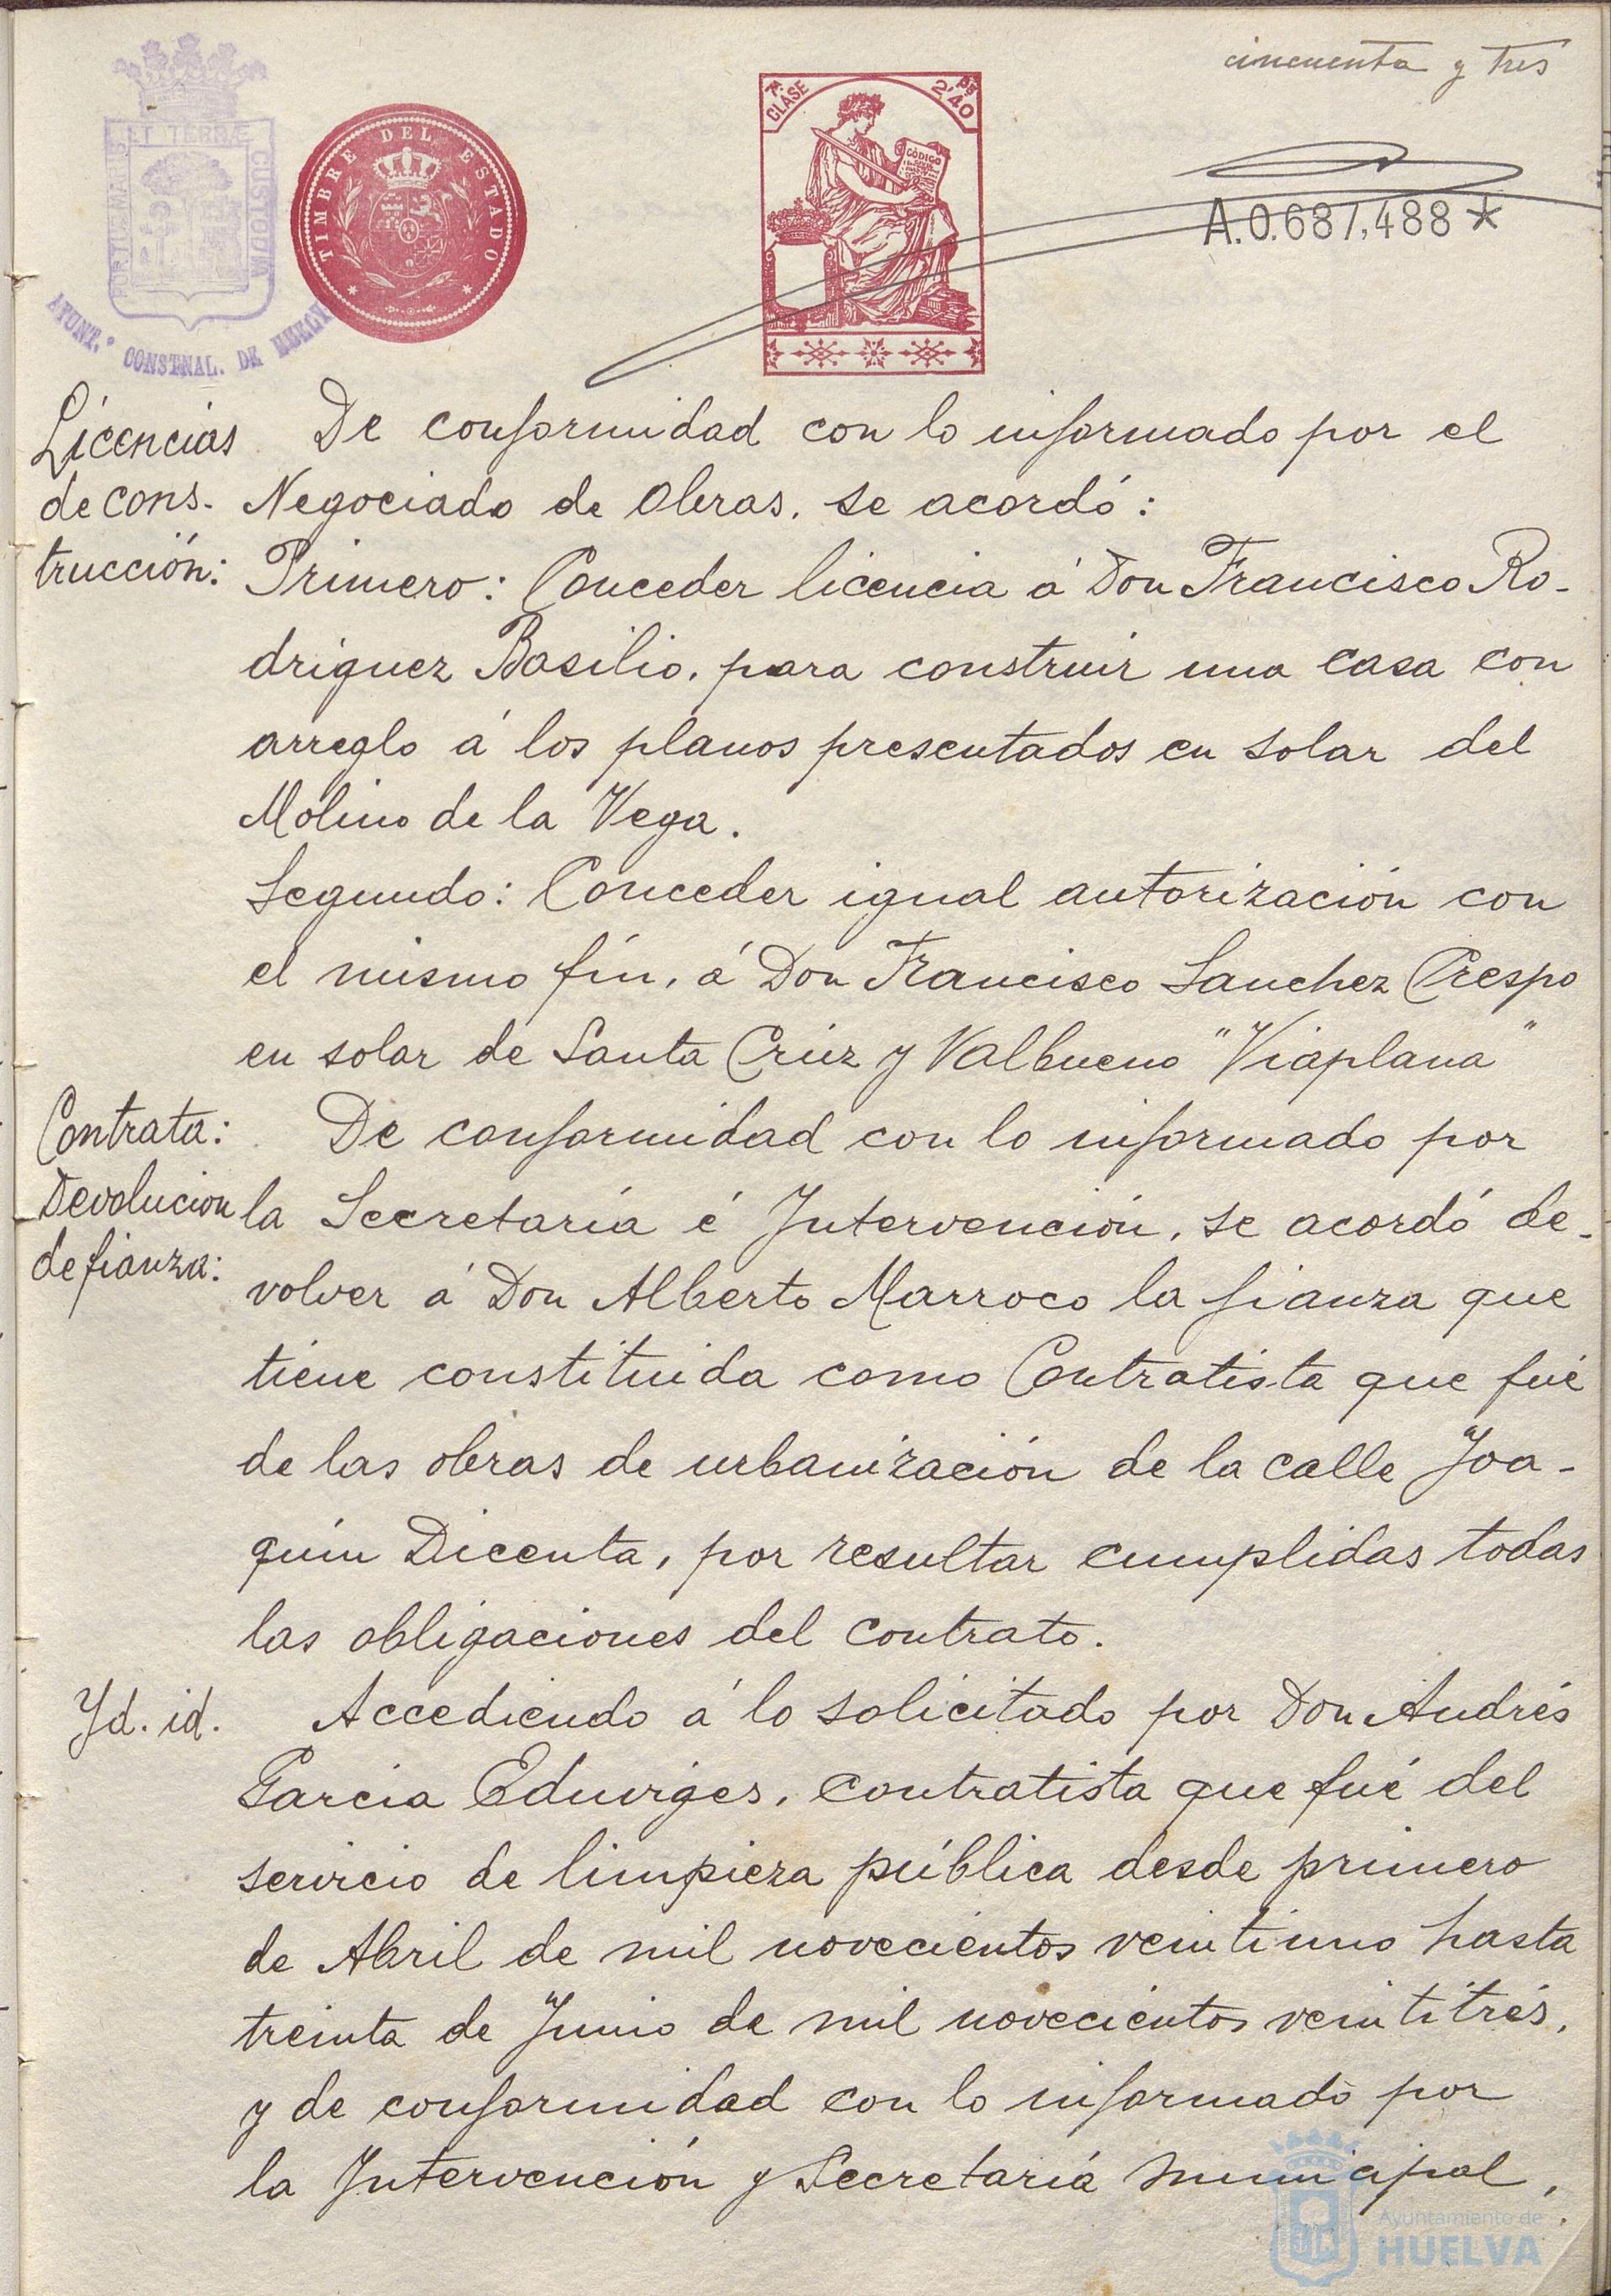 cincuenta y tres
PORTUS MARIS ET TERRÆ CUSTODIA
AYUNT.º CONSTNAL. DE HUELVA
TIMBRE DEL ESTADO
7ª CLASE
2'40 PS
CÓDIGO
A.0.687,488*
Licencias
de cons-
trucción:
De conformidad con lo informado por el
Negociado de Obras, se acordó:
Primero: Conceder licencia á Don Francisco Ro-
driguez Basilio, para construir una casa con
arreglo á los planos presentados en solar del
Molino de la Vega.
Segundo: Conceder igual autorización con
el mismo fín, á Don Francisco Sanchez Crespo
en solar de Santa Crúz y Valbueno "Viaplana"
Contrata:
Devolucion
de fianza:
De conformidad con lo informado por
la Secretaría é Intervención, se acordó de-
volver á Don Alberto Marroco la fianza que
tiene constituida como Contratista que fué
de las obras de urbanización de la calle Joa-
quin Dicenta, por resultar cumplidas todas
las obligaciones del contrato.
Yd. id.
Accediendo á lo solicitado por Don Andrés
Garcia Eduviges, contratista que fué del
servicio de limpieza pública desde primero
de Abril de mil novecientos veintiuno hasta
treinta de Junio de mil novecientos veintitrés,
y de conformidad con lo informado por
la Intervención y Secretaría municipal,
Ayuntamiento de
HUELVA